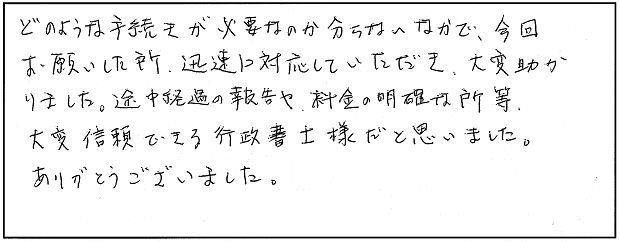 どのような手続きが必要なのか分らないなかで、今回
お願いした所、迅速に対応していただき、大変助か
りました。途中経過の報告や、料金の明確な所等、
大変信頼できる行政書士様だと思いました。
ありがとうございました。